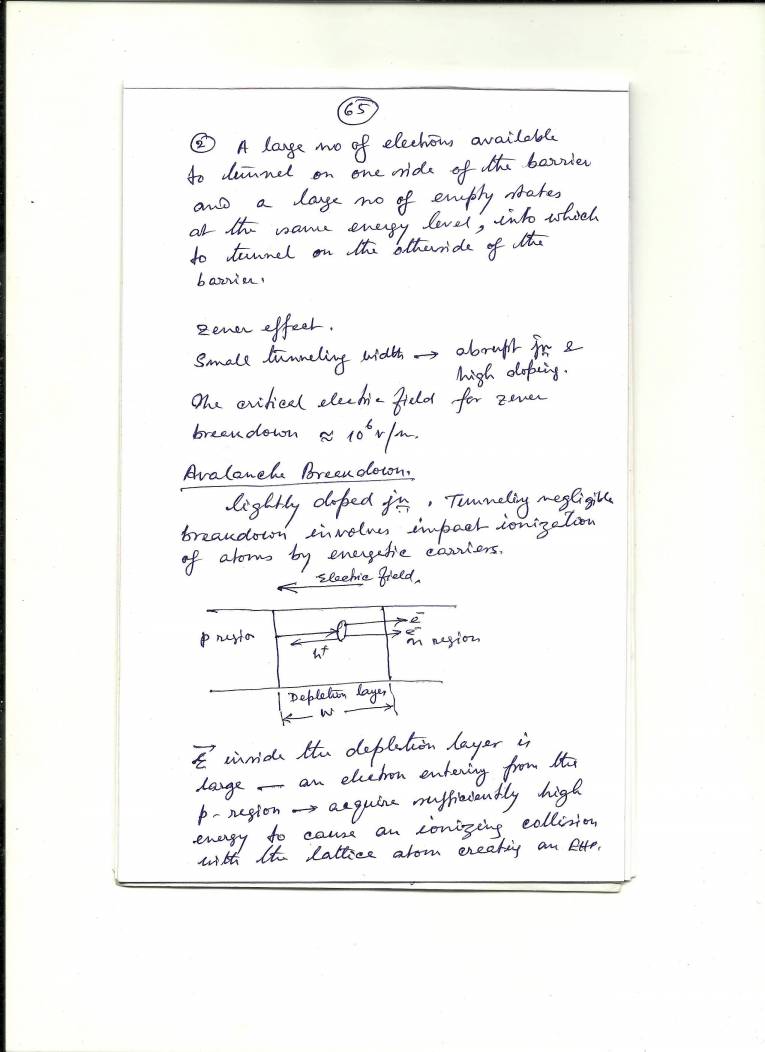 65
② A large no of electrons available
to tunnel on one side of the barrier
and a large no of empty states
at the same energy level, into which
to tunnel on the otherside of the
barrier.
Zener effect.
Small tunneling width → abrupt jn &
high doping.
The critical electric field for zener
breakdown ≈ 10⁶ v/m.
Avalanche Breakdown.
lightly doped jn, Tunneling negligible
breakdown involves impact ionization
of atoms by energetic carriers.
Electric field.
p region
h⁺
e⁻
e⁻
n region
Depletion layer
W
E⃗ inside the depletion layer is
large — an electron entering from the
p-region → acquire sufficiently high
energy to cause an ionizing collision
with the lattice atom creating an EHP.